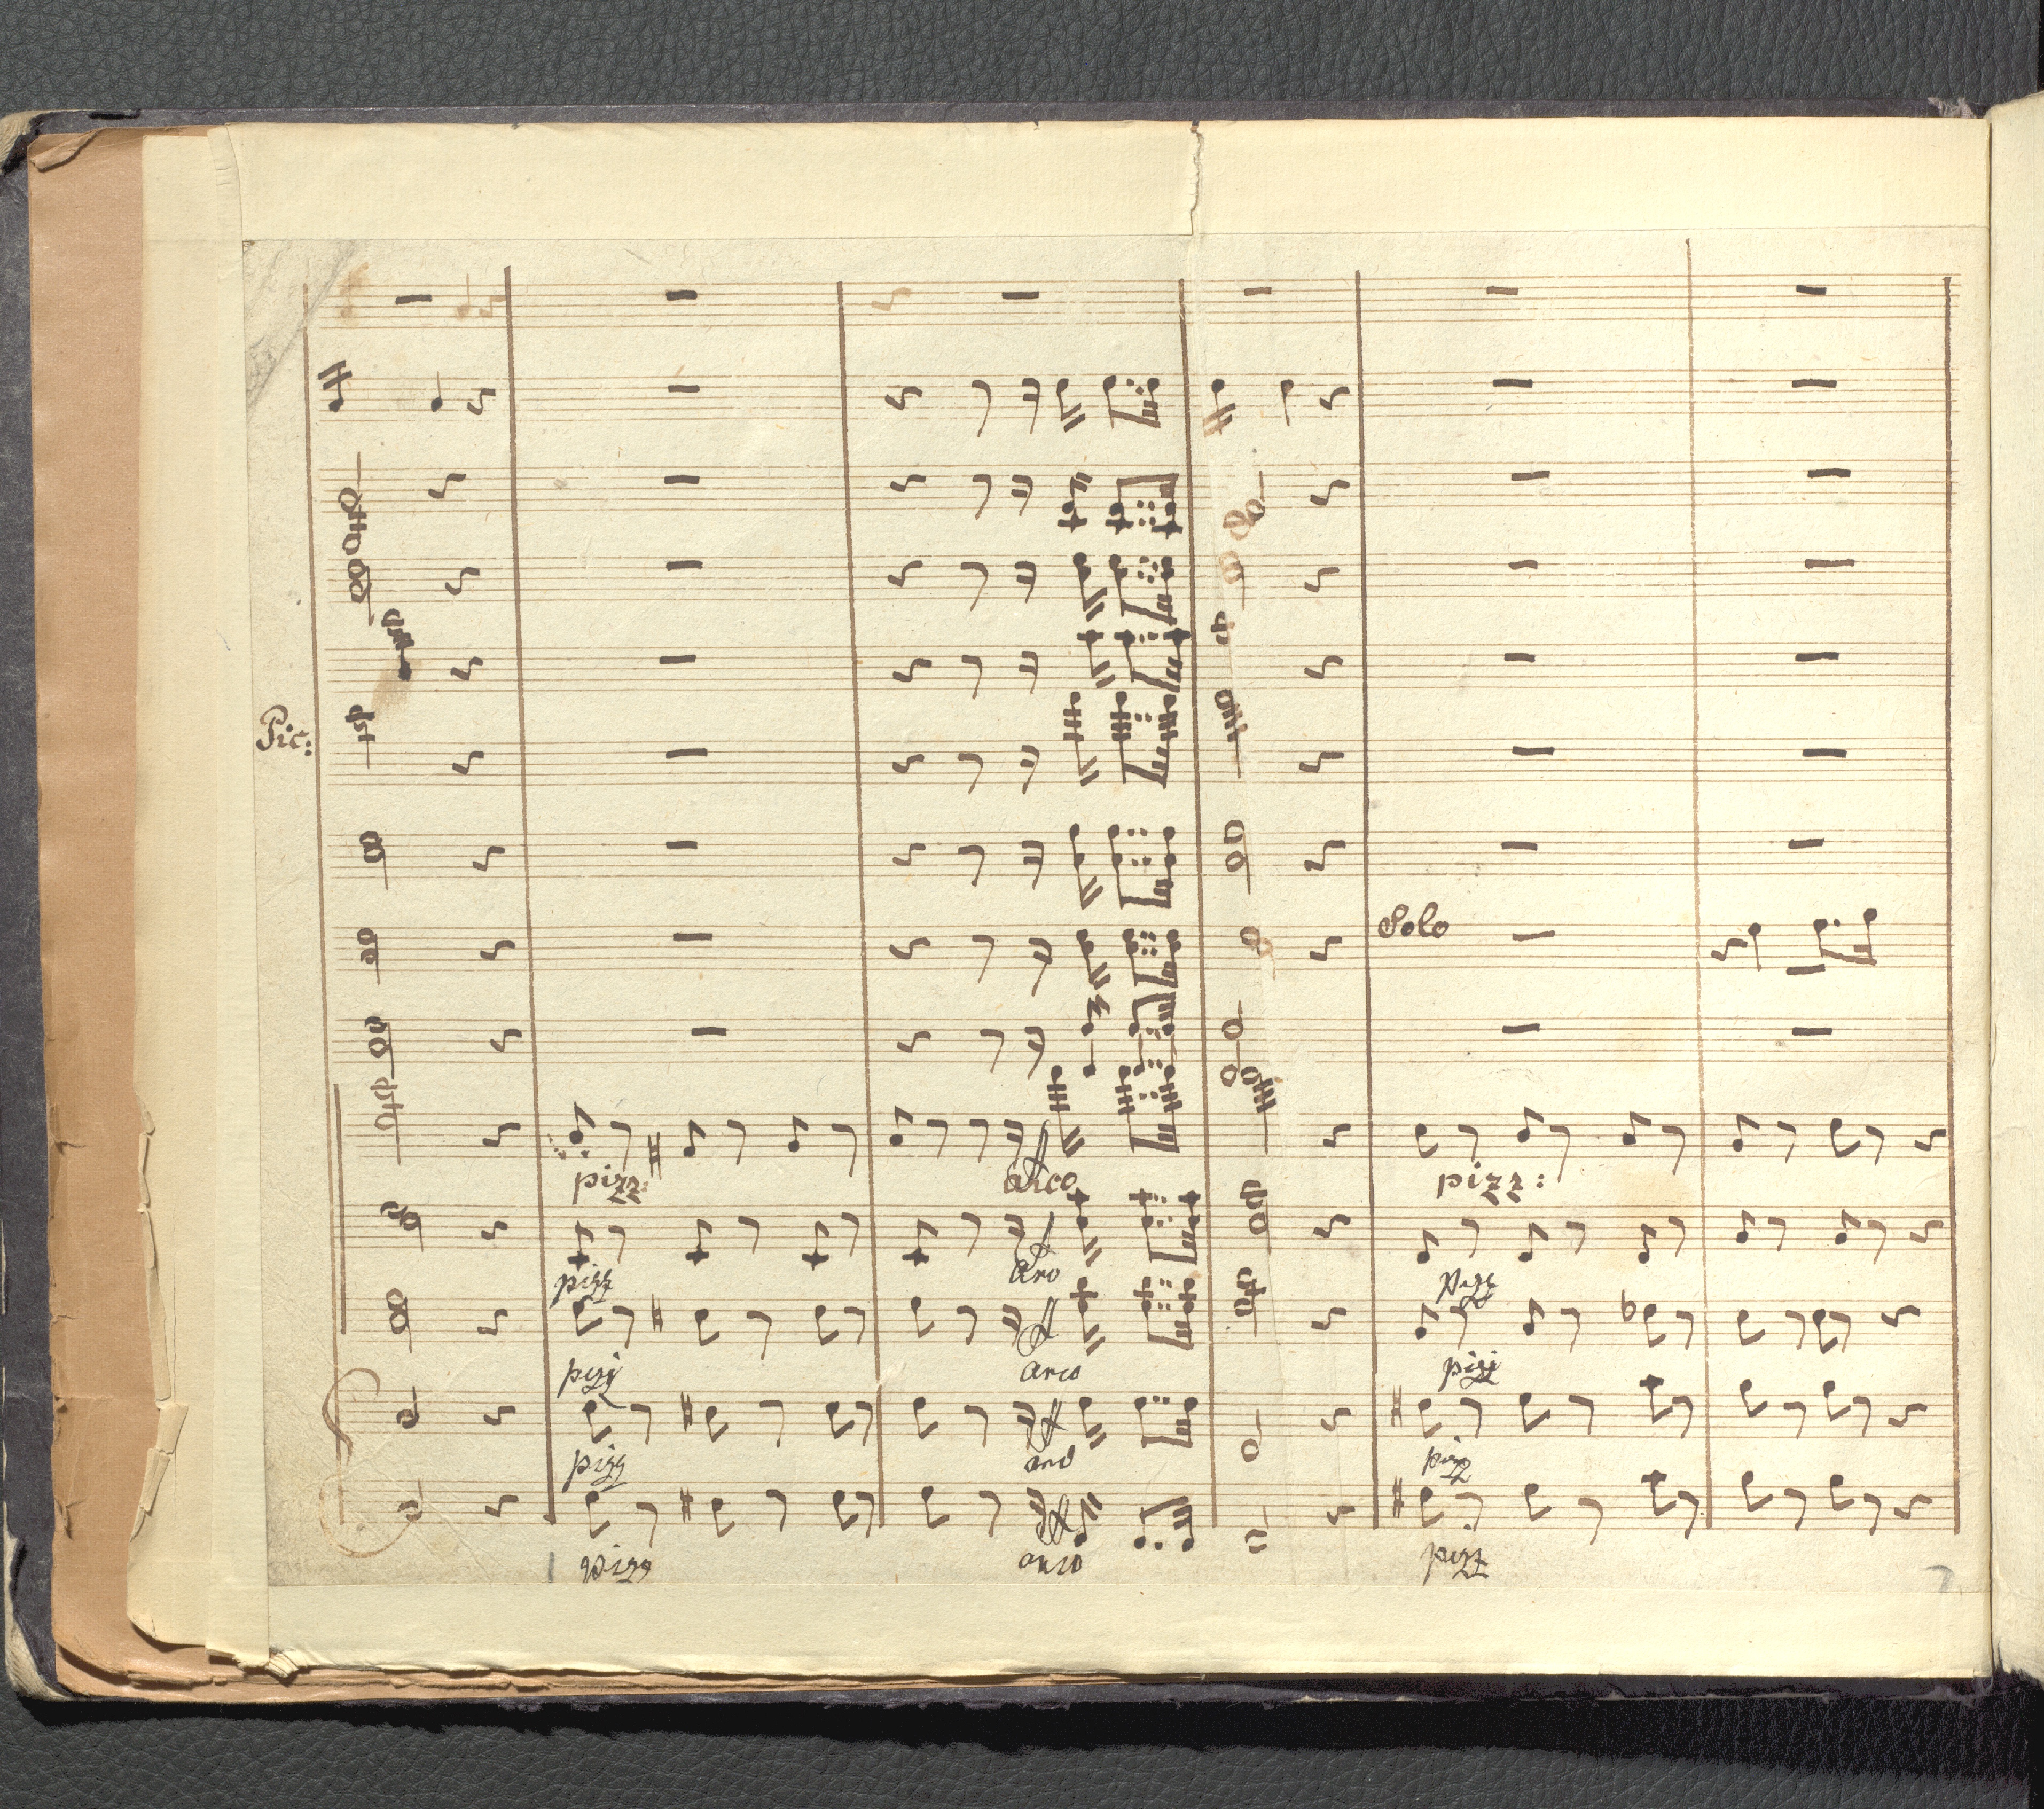 Pic:
Solo
pizz: arco pizz:
pizz arco pizz
pizz arco pizz
pizz arco pizz
pizz arco pizz
7